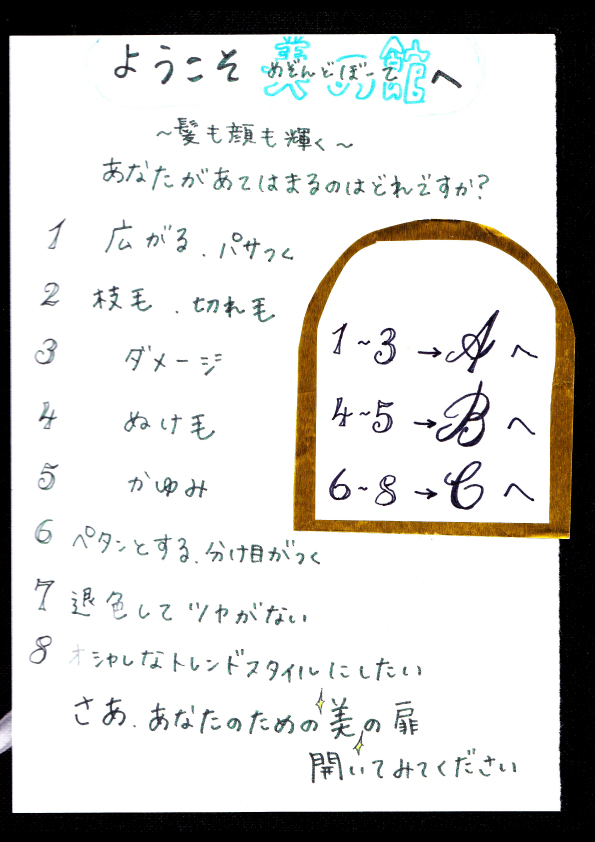 ようこそ 美の館へ
めぞんどぼーて
～髪も顔も輝く～
あなたがあてはまるのはどれですか?
1 広がる、パサつく
2 枝毛、切れ毛
3 ダメージ
4 ぬけ毛
5 かゆみ
6 ペタンとする、分け目がつく
7 退色してツヤがない
8 オシャレなトレンドスタイルにしたい
1~3→Aへ
4~5→Bへ
6~8→Cへ
さあ、あなたのための美の扉
開いてみてください